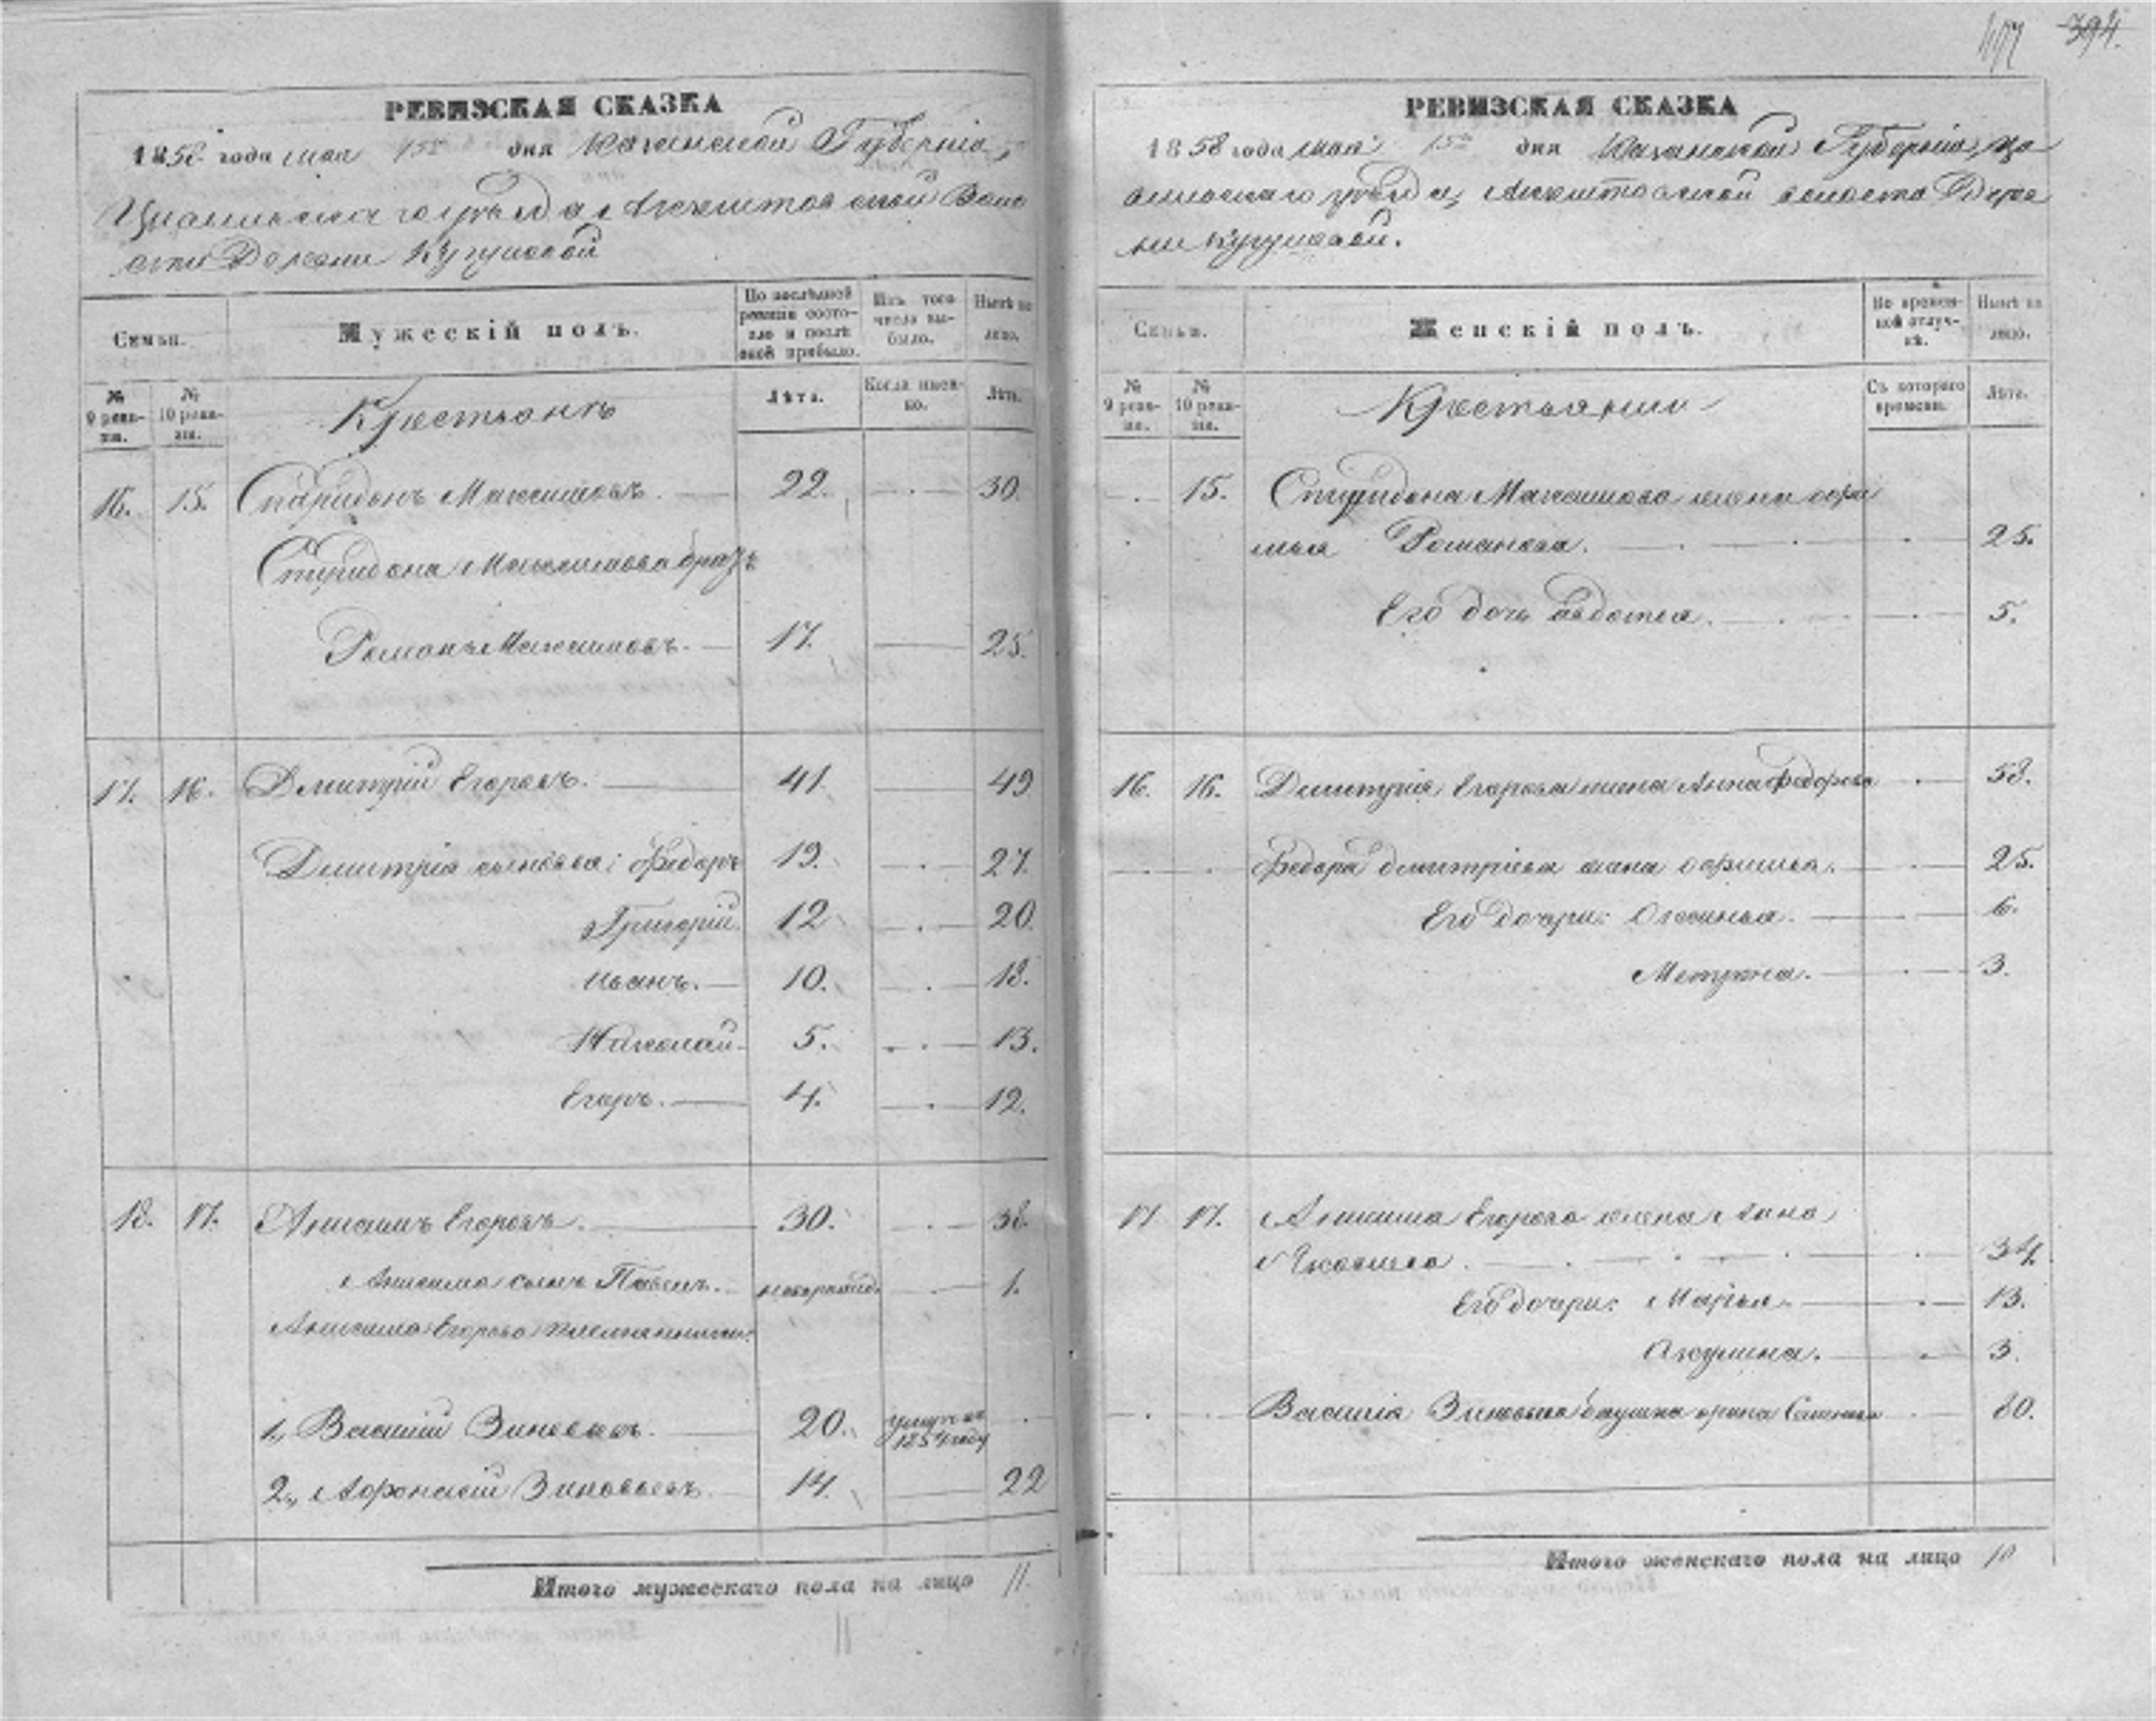 394.
РЕВИЗСКАЯ СКАЗКА
1858 года мая 15го дня Казанской Губерніи,
Цивильскаго уѣзда, Волос
сти Деревни
Семьи.
Мужескій полъ.
По послѣдней ревизіи состояло и послѣ оной прибыло.
Изъ того числа выбыло.
Нынѣ на лицо.
№ 9 ревизіи.
№ 10 ревизіи.
Крестьянъ
Лѣта.
Когда именно.
Лѣта.
16. 15. Спиридонъ Максимовъ. 22. 30.
Спиридона Максимова братъ
Романъ Максимовъ. 17. 25.
17. 16. Дмитрій Егоровъ. 41. 49
Дмитрія сыновья: Федоръ 19. 27.
Григорій. 12 20.
Иванъ. 10. 18.
Николай 5. 13.
Егоръ. 4. 12.
18. 17. Анисимъ Егоровъ. 30. 38.
Анисима сынъ Павелъ. 1.
Анисима Егорова племянники:
1, Василій Зиновьевъ. 20. умеръ въ 1854 году
2, Афонасій Зиновьевъ 14. 22
Итого мужескаго пола на лицо 11.
11
РЕВИЗСКАЯ СКАЗКА
1858 года мая 15го дня Казанской Губерніи, Ци
вильскаго уѣзда, волости Дерев
ни
Семьи.
Женскій полъ.
Во временной отлучкѣ.
Нынѣ на лицо.
№ 9 ревизіи.
№ 10 ревизіи.
Крестьянки
Съ котораго времени.
Лѣта.
15. Спиридона Максимова жена Софи
мья Романова. 25.
Его дочь Авдотья. 5.
16. 16. Дмитрія Егорова жена Анна Федорова 58.
Федора Дмитріева жена 25.
Его дочери: 6.
Матрена. 3.
17 17. Анисима Егорова жена Анна
34.
Его дочери: Марья. 13.
Акулина. 3.
Василія Зиновьева Орина 80.
Итого женскаго пола на лицо 10